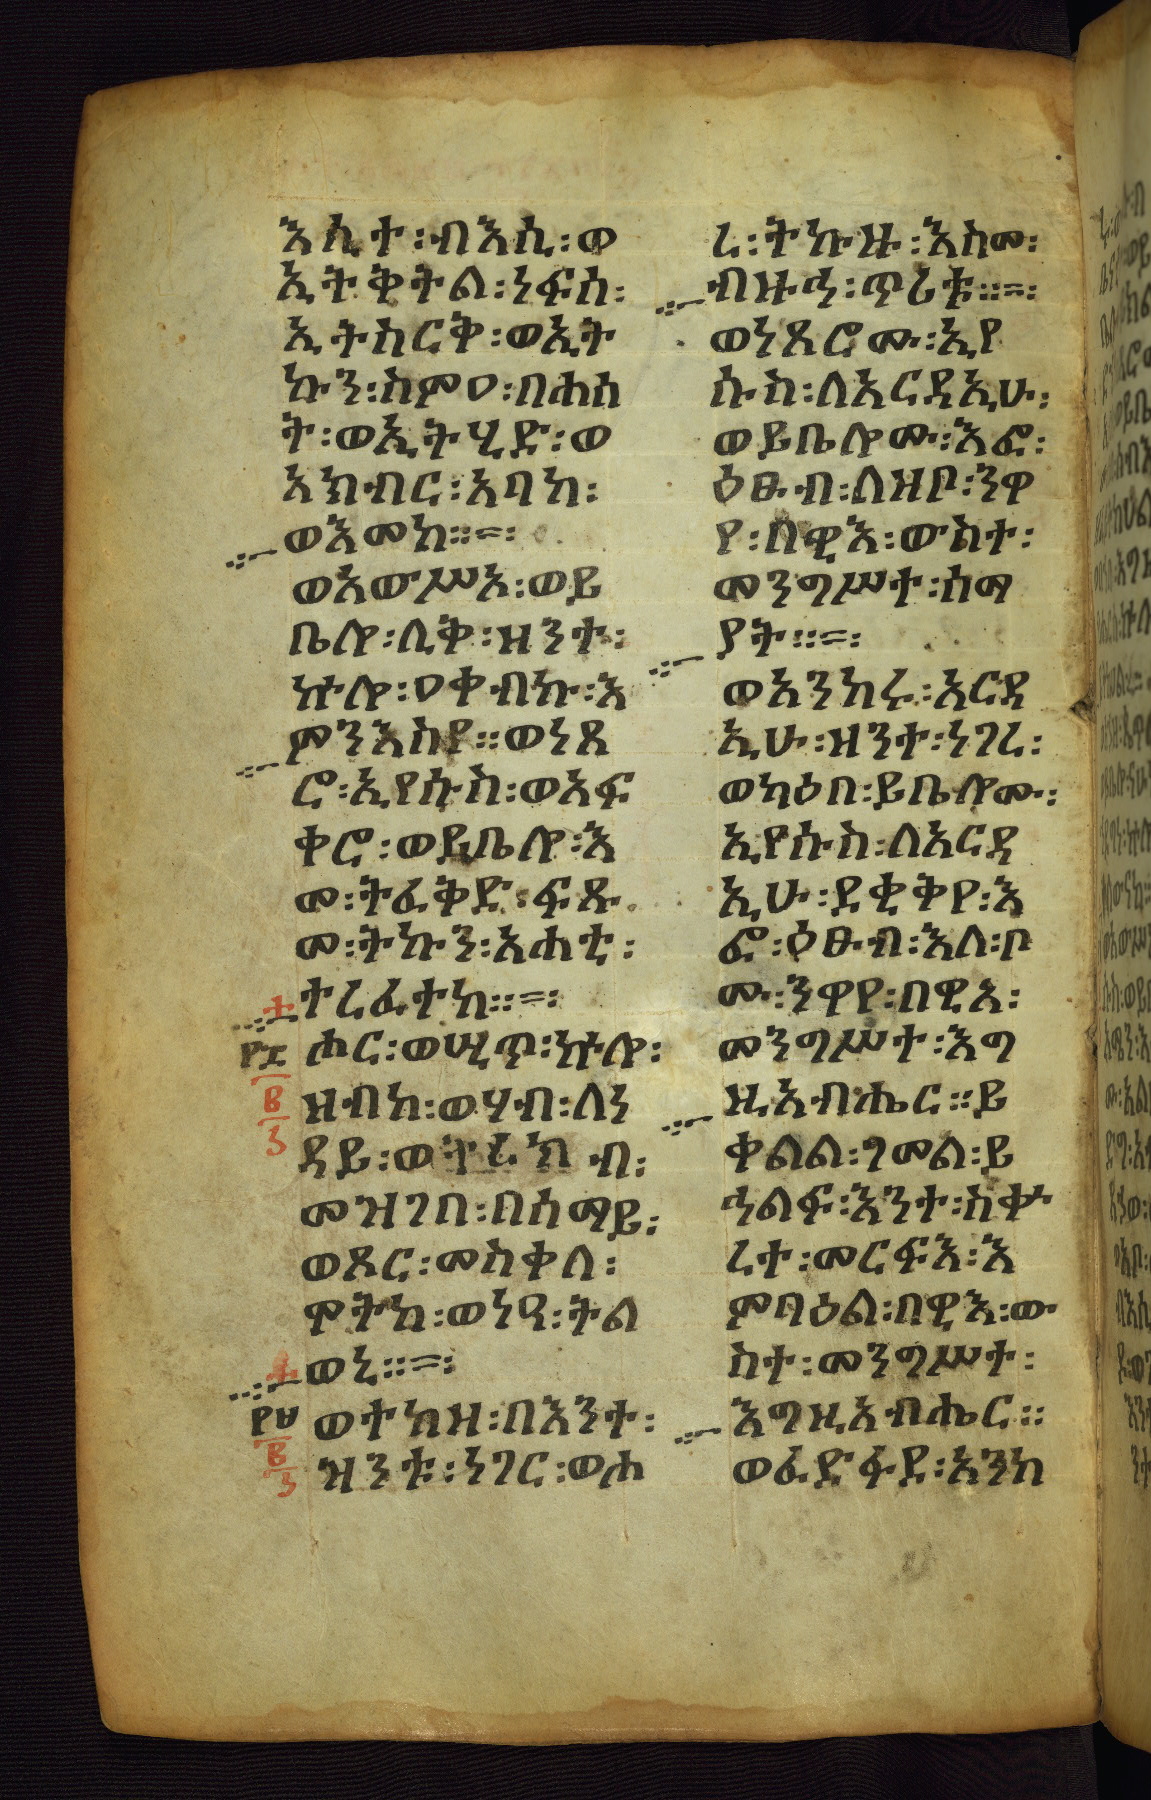 እሲተ፡ብእሲ፡ወ
ኢትቅትል፡ነፍሰ፡
ኢትስርቅ፡ወኢት
ኩን፡ስምዐ፡በሐሰ
ት፡ወኢትሂድ፡ወ
አክብር፡አባከ፡
ወእመከ።=፡
ወአውሥአ፡ወይ
ቤሎ፡ሊቅ፡ዝንተ፡
ኵሎ፡ዐቀብኩ፡እ
ምንእስየ።ወነጸ
ሮ፡ኢየሱስ፡ወአፍ
ቀሮ፡ወይቤሎ፡እ
መ፡ትፈቅድ፡ፍጹ
መ፡ትኩን፡አሐቲ፡
ተረፈተከ።=፡
ሐር፡ወሢጥ፡ኵሎ፡
ዘብከ፡ወሃብ፡ለነ
ዳይ፡ወትረክብ፡
መዝገበ፡በሰማይ፡
ወጹር፡መስቀለ፡
ሞትከ፡ወነዓ፡ትል
ወኒ።=፡
ወተከዘ፡በእንተ፡
ዝንቱ፡ነገር፡ወሐ
ረ፡ትኩዙ፡እስመ፡
ብዙኅ፡ጥሪቱ።=፡
ወነጸሮሙ፡ኢየ
ሱስ፡ለአርዳኢሁ፡
ወይቤሎሙ፡እፎ፡
ዕፁብ፡ለዘቦ፡ንዋ
የ፡በዊአ፡ውስተ፡
መንግሥተ፡ሰማ
ያት።=፡
ወአንከሩ፡አርዳ
ኢሁ፡ዝንተ፡ነገረ፡
ወካዕበ፡ይቤሎሙ፡
ኢየሱስ፡ለአርዳ
ኢሁ፡ደቂቅየ፡እ
ፎ፡ዕፁብ፡እለ፡ቦ
ሙ፡ንዋየ፡በዊአ፡
መንግሥተ፡እግ
ዚአብሔር።ይ
ቀልል፡ገመል፡ይ
ኅልፍ፡እንተ፡ስቍ
ረተ፡መርፍእ፡እ
ምባዕል፡በዊእ፡ው
ስተ፡መንግሥተ፡
እግዚአብሔር።
ወፈድፋደ፡አንከ